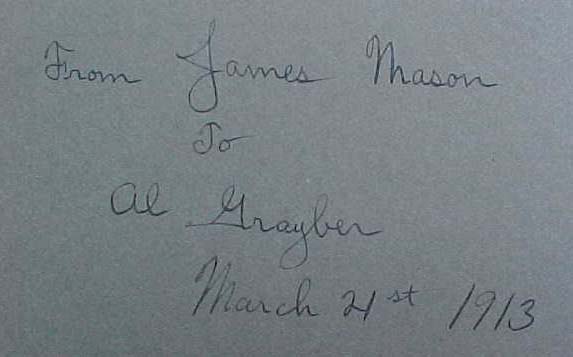 From James Mason
To
Al Grayber
March 21st 1913